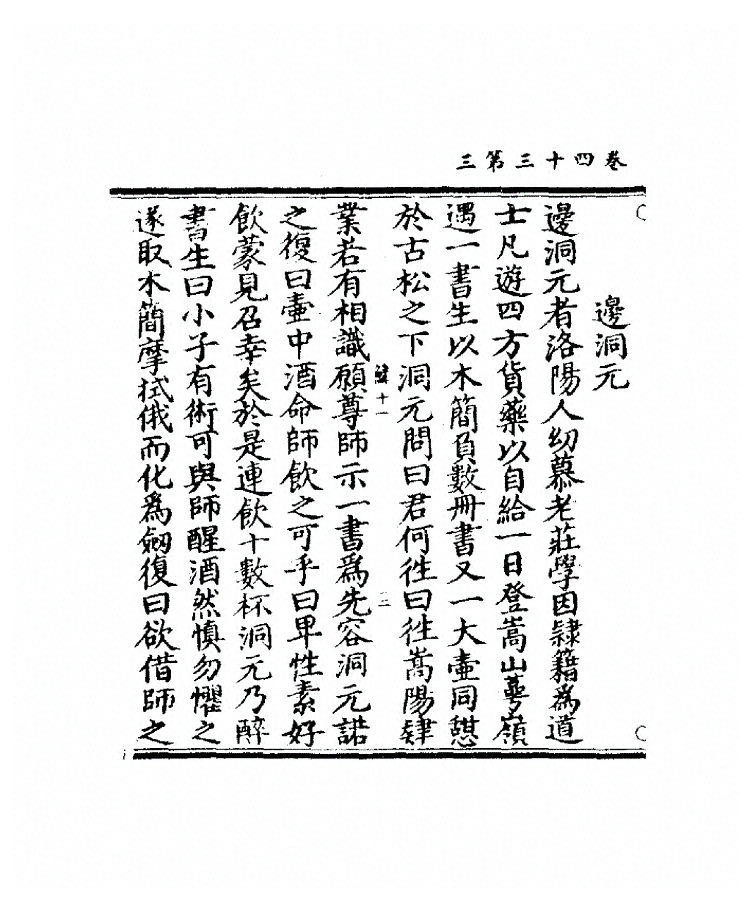 卷四十三第三
邊洞元
邊洞元者洛陽人幼慕老莊學因隸籍爲道
士凡遊四方貨藥以自給一日登嵩山蕚嶺
遇一書生以木簡負數冊書又一大壷同憇
於古松之下洞元問曰君何徃曰徃嵩陽肄
業若有相識願尊師示一書爲先容洞元諾
十一
二
之復曰壷中酒命師飲之可乎曰卑性素好
飲蒙見召幸矣於是連飲十數杯洞元乃醉
書生曰小子有術可與師醒酒然慎勿懼之
遂取木簡摩拭俄而化爲劒復曰欲借師之